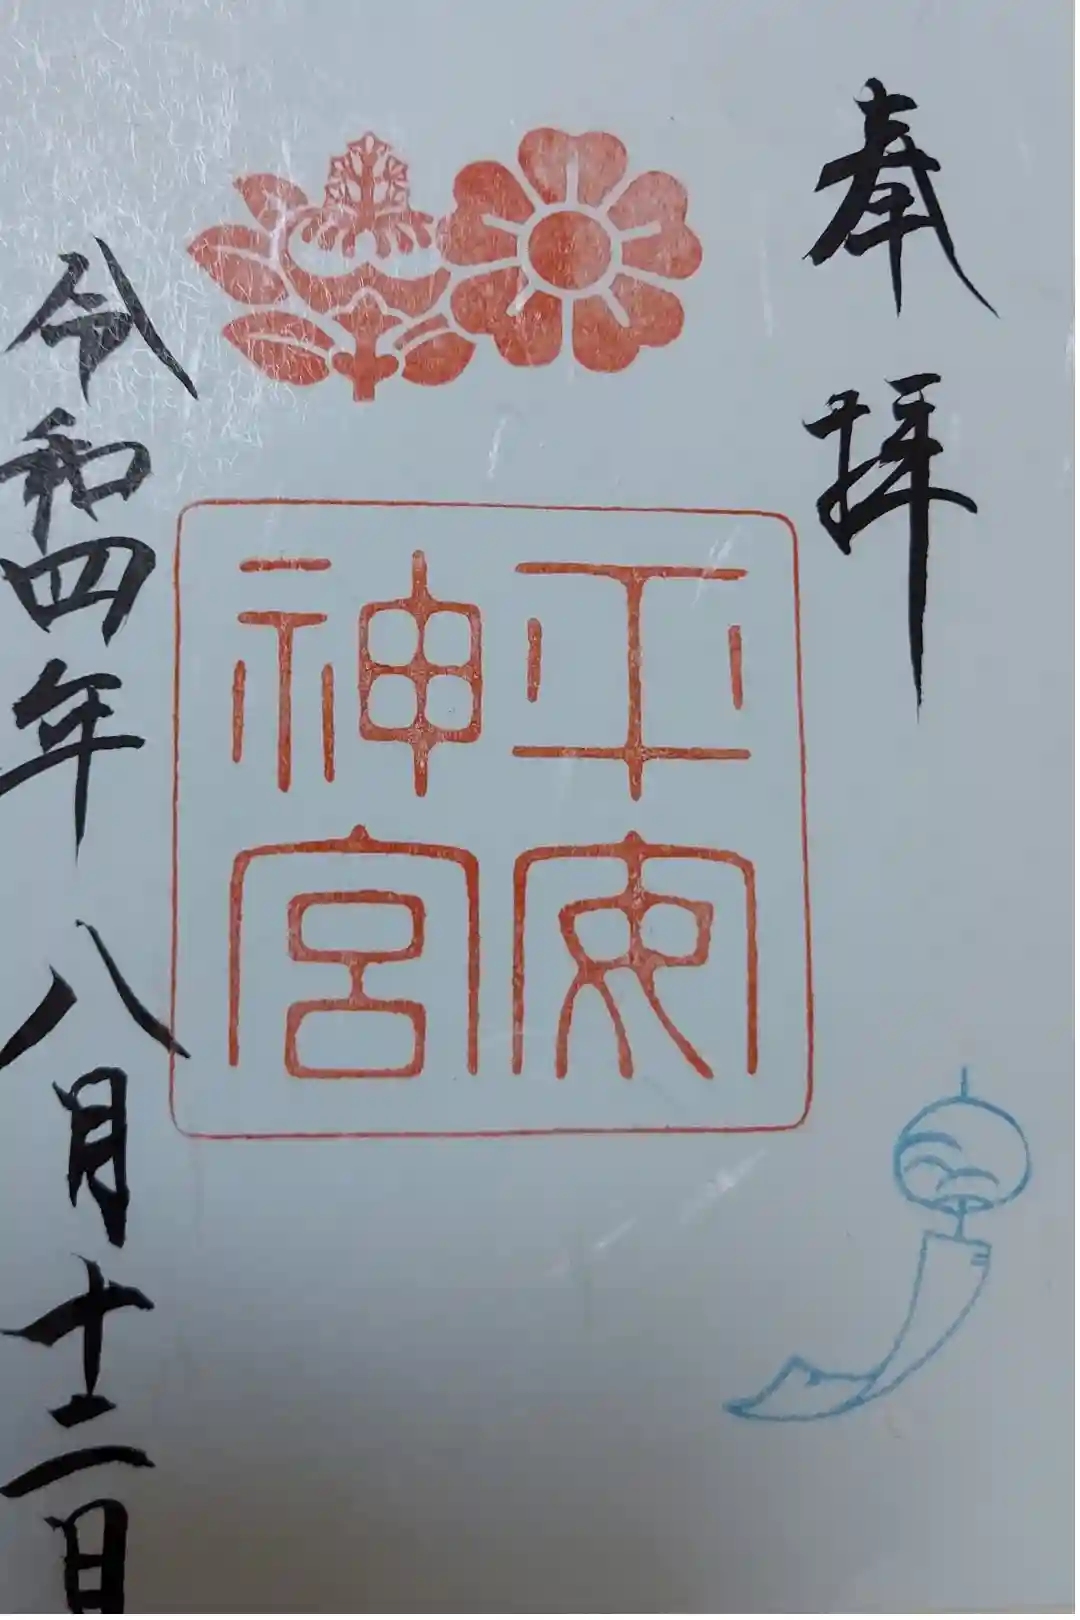 奉拝
平安
神宮
令和四年 八月十二日